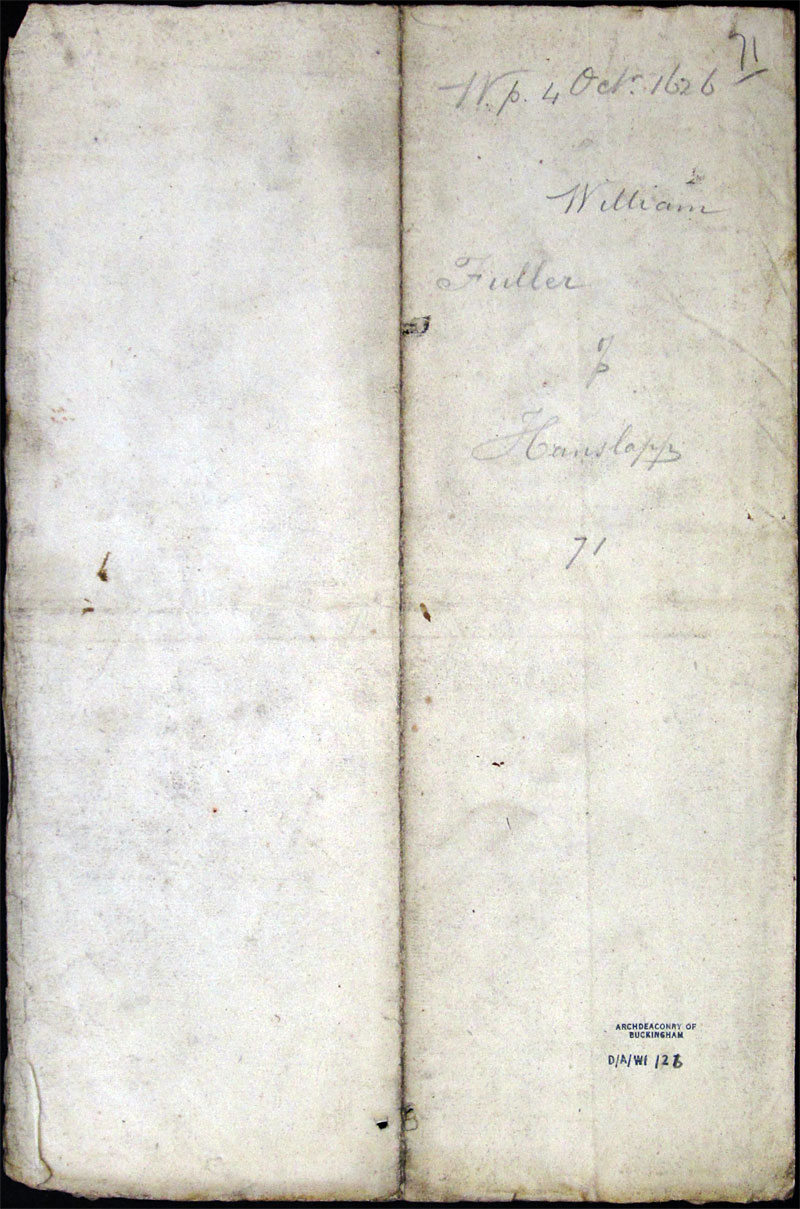 71
W.p. 4 Octr. 1626
William
Fuller
of
Hanslapp
71
ARCHDEACONRY OF
BUCKINGHAM
D/A/WF